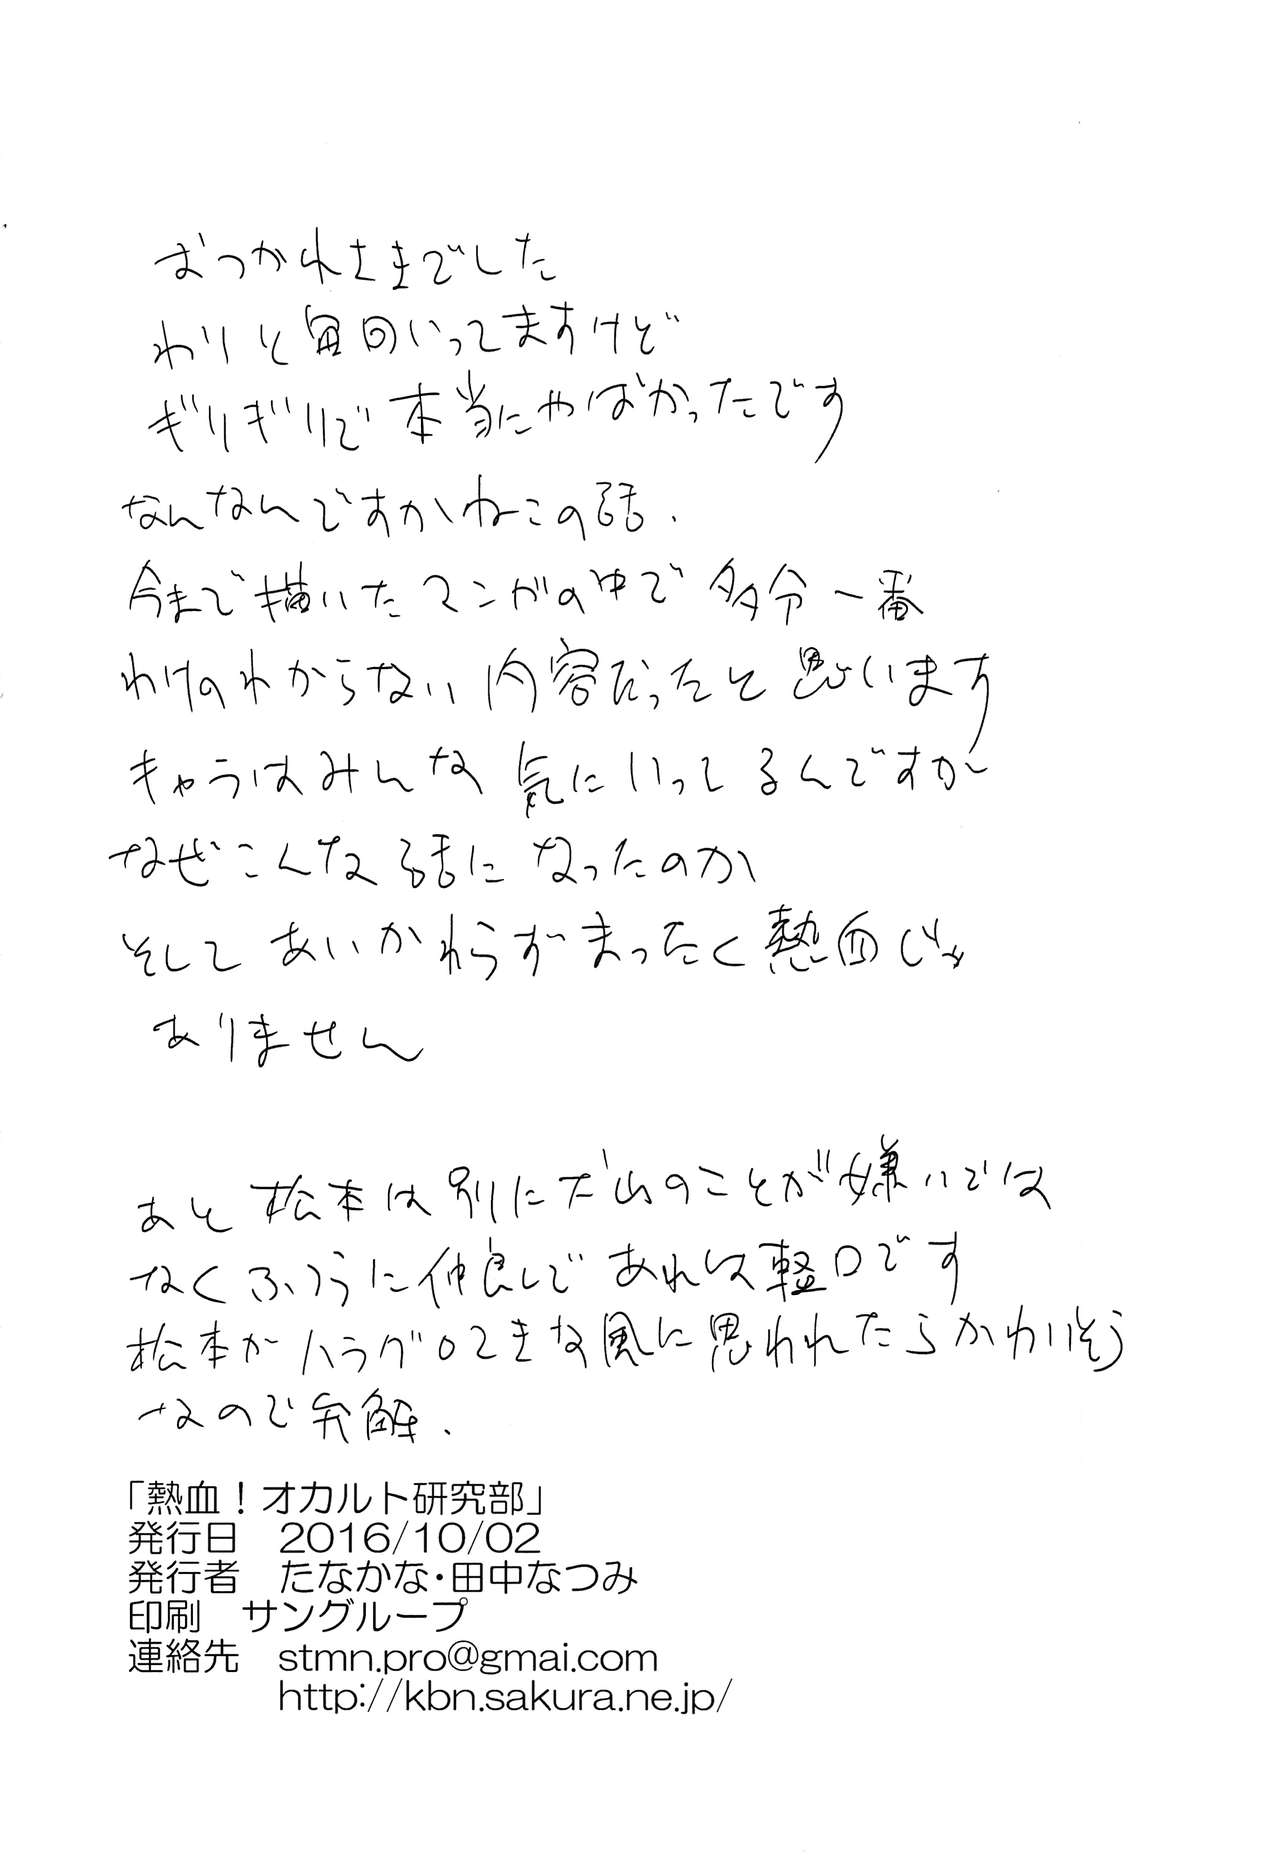 おつかれさまでした
わりと毎回いってますけど
ぎりぎりで本当にやばかったです
なんなんですかねこの話.
今まで描いたマンガの中で多分一番
わけのわからない内容だったと思います
キャラはみんな気にいってるんですが
なぜこんな話になったのか
そしてあいかわらずまったく熱血じゃ
ありません
あと松本は別に犬山のことが嫌いでは
なくふつうに仲良しであれは軽口です
松本がハラグロてきな風に思われたらかわいそう
なので弁解.
「熱血！オカルト研究部」
発行日　2016/10/02
発行者　たなかな・田中なつみ
印刷　サングループ
連絡先　stmn.pro@gmai.com
http://kbn.sakura.ne.jp/